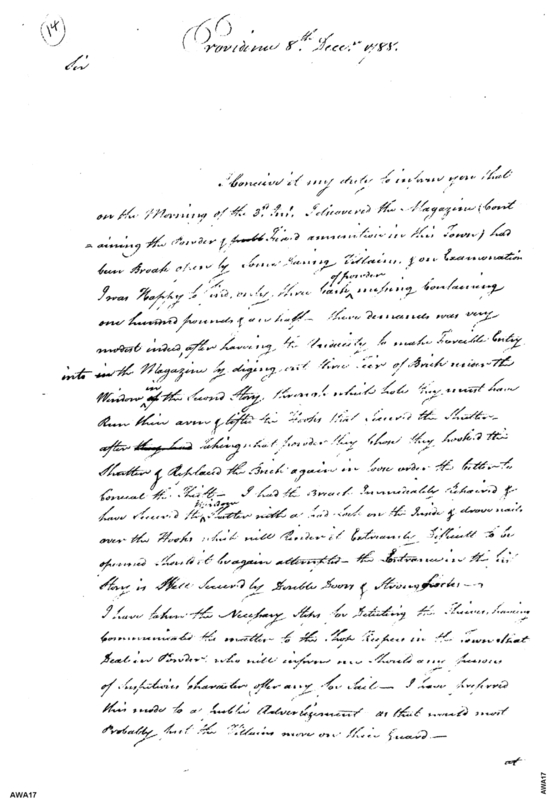 14
Providence 8th Decr 1788.
Sir
I Conceive it my duty to inform you that
on the Morning of the 3d Int. I discovered the Magazine (Cont
=aining the Powder & Fixed ammunition in this Town) had
been Broak open by Some Daring Villains, & on Examonation
of powder
I was Happy to find, only, three Cask missing Containing
one hundred pounds & an half – there demands was very
modest indeed, after having the to make Forceible Entry
into in the Magazine by diging out three Teir of Brick under the
in
Window of the Second Story, through which hole they must have
Run their arm & lofted the Hooks that Secured the Shutter –
after they had takeing what powder they chose they hooked the
Shutter & Replaced the Brick again in loose order the better to
Conceal the Theft – I had the Breach Immidiately Repaired &
Window
have Secured the Shutter with a Pad Lock on the Inside & drove nails
over the Hooks which will Render it Extreamly Difficult to be
opened Should it be again attempted – the Entrance in the
Story is Well Secured by Double Doors & Strong Locks –
I have taken the Necessary Steps for Detecting the Thieves, having
Communicated the matter to the Shop Keepers in the Town that
Deal in Powder, who will inform me Should any persons
of Suspitious Character offer any for Sail – I have preferred
this mode to a public Advertizement as that would most
Probably put the Villains more on their Guard –
at
AWA17
AWA17